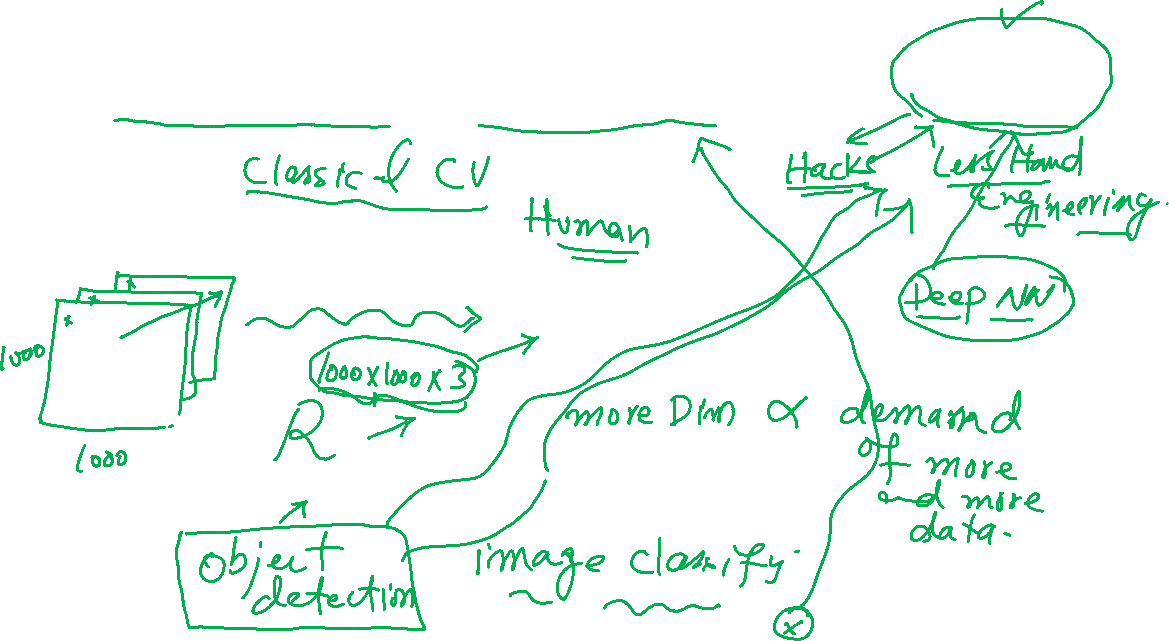 Classical CV
Hacks
Less Hand
Engineering.
Human
Deep NN
1000
1000
R
1000x1000x3
more Dim ∝ demand
of more
and more
data.
object
detection
image classify.
x